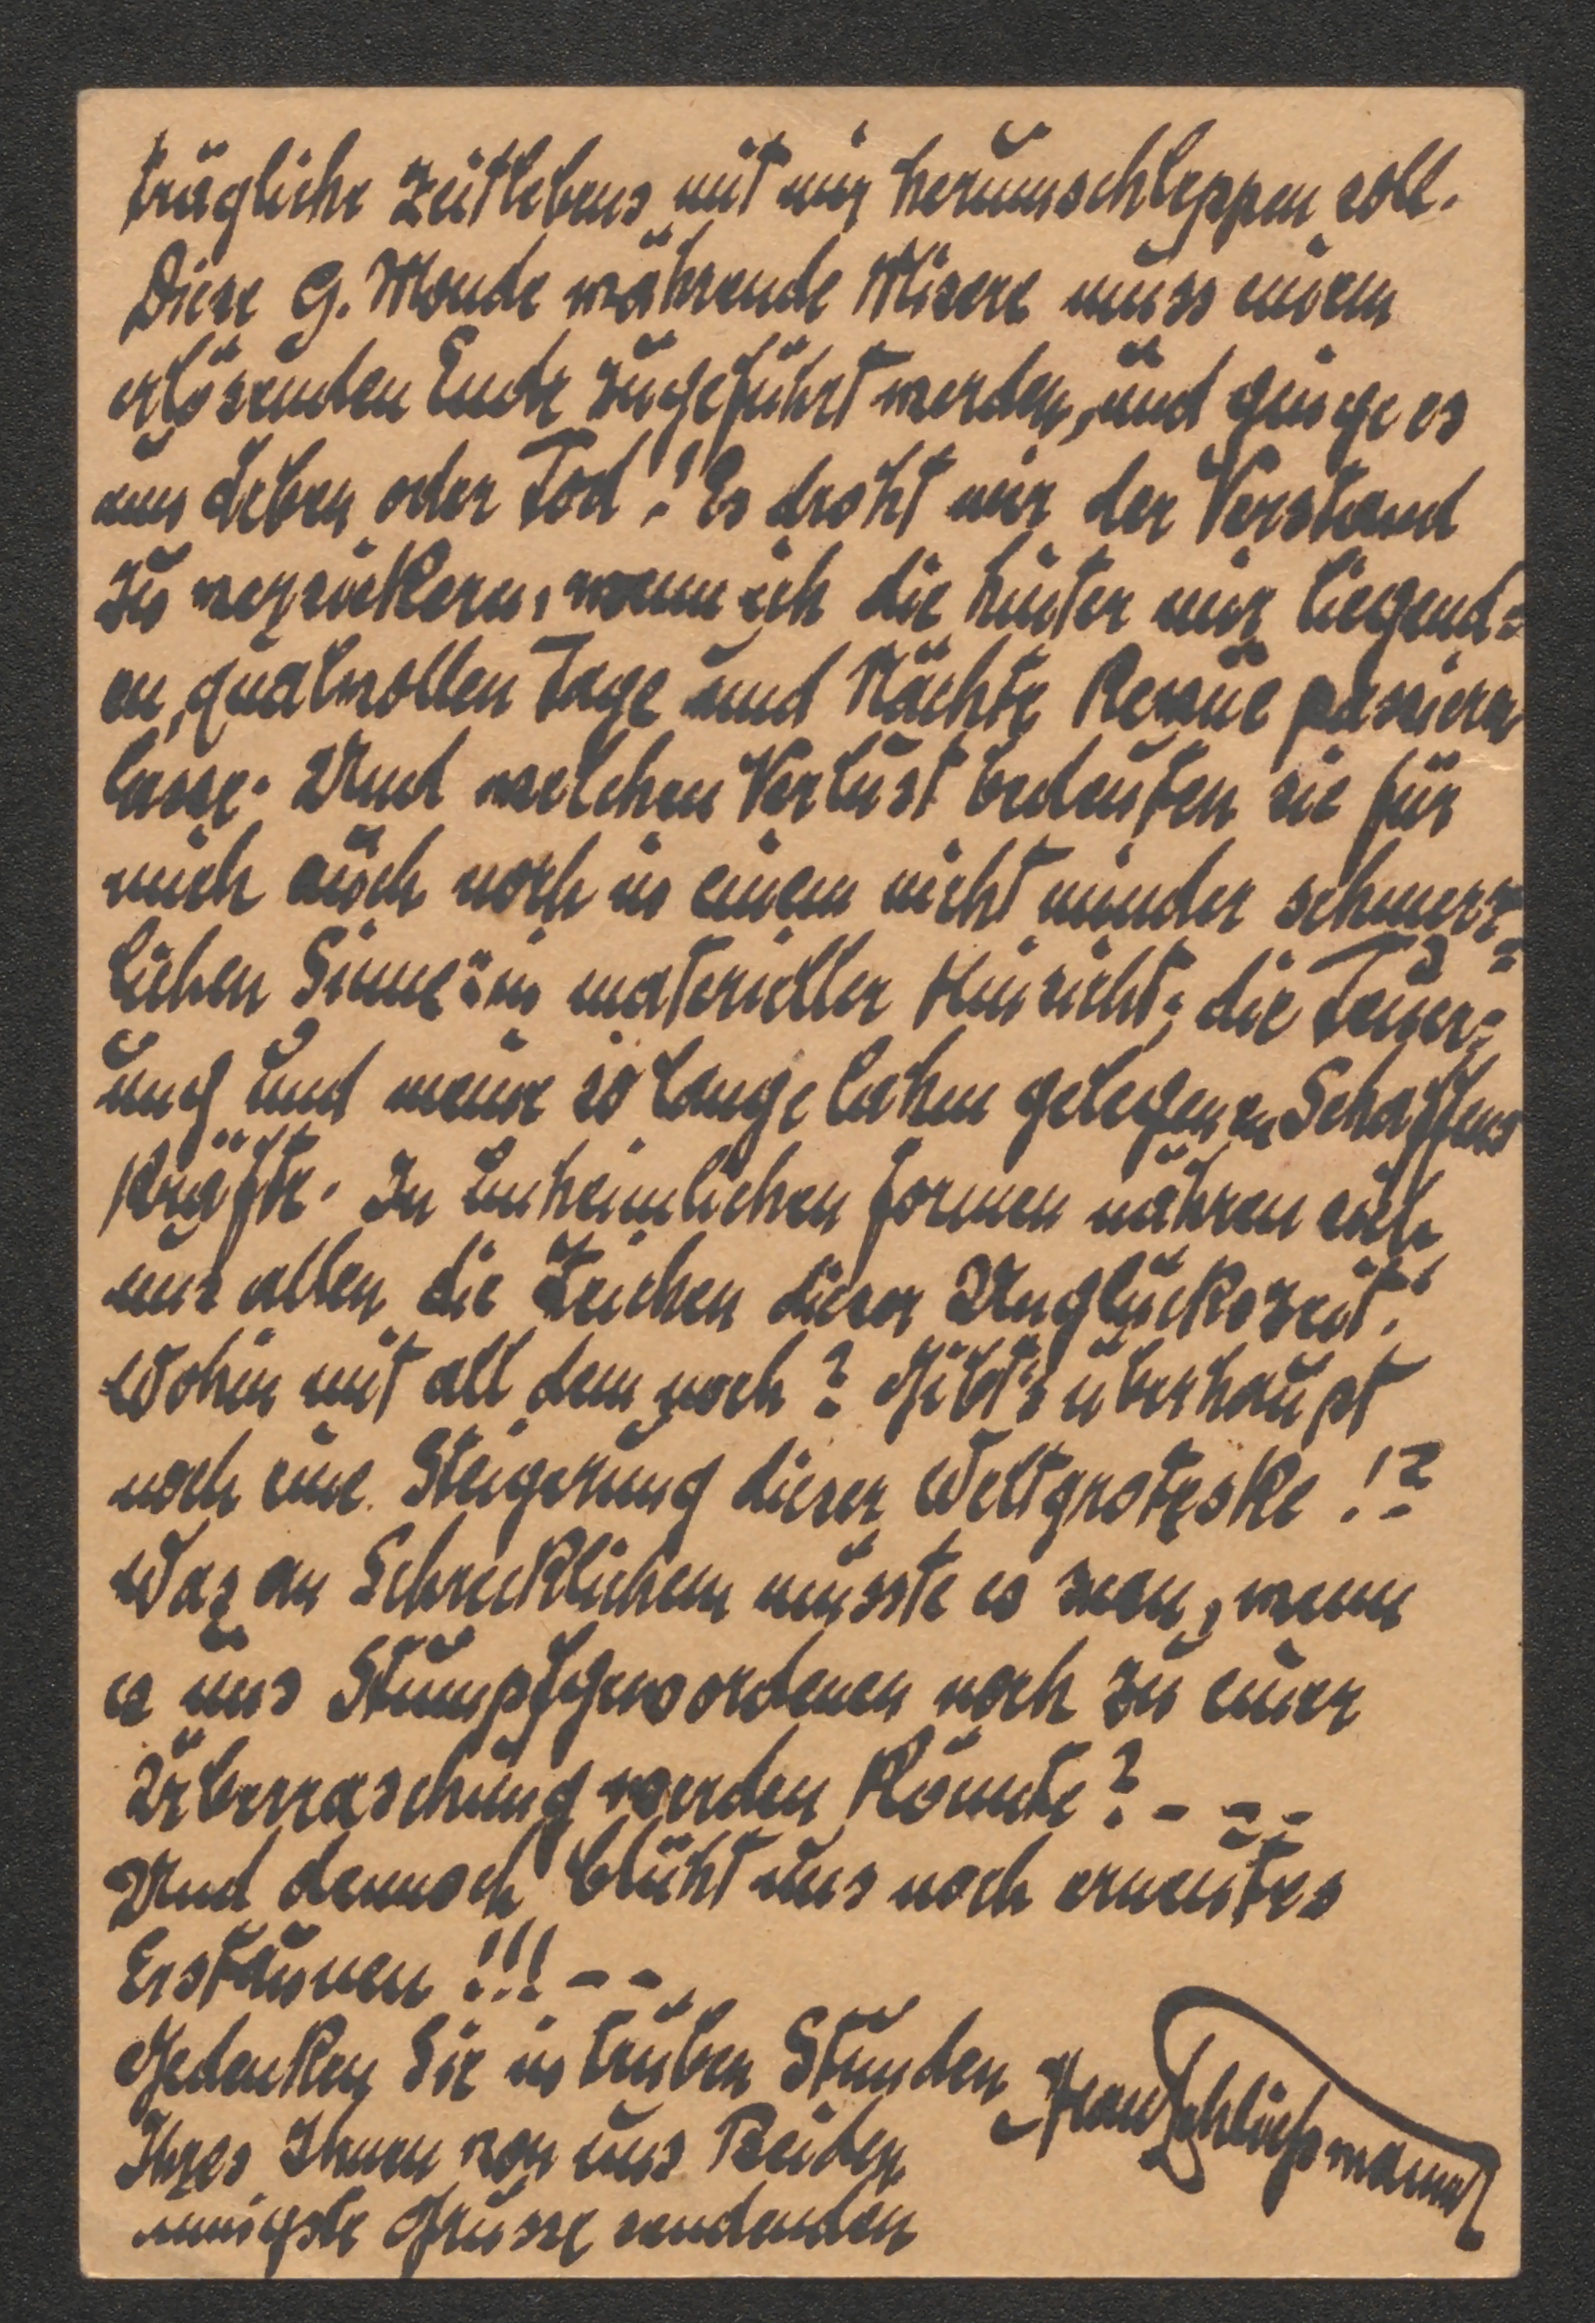 trägliche zeitlebens mit mir herumschleppen soll.
Diese 9. Monde währende Misere muss einem
erlösenden Ende zugeführt werden, und ginge es
um Leben oder Tod! Es droht mir der Verstand
zu versickern, wenn ich die hinter mir liegend=
en, qualvollen Tage und Nächte Revüe passieren
lasse. Und welchen Verlust bedeuten sie für
mich auch noch in einem nicht minder schmerz=
lichen Sinne: in materieller Hinsicht; die Teuer=
ung und meine so lange lahm gelegenen Schaffens
kräfte. In unheimlichen Formen nähren sich
uns allen die Zeichen dieser Unglückszeit!
Wohin mit all dem noch? Gibt's überhaupt
noch eine Steigerung dieser Weltgroteske!?
Was an Schrecklichem müsste es sean, wenn
es uns Stumpfgewordenen noch zu einer
Überraschung werden könnte? - - -
Und dennoch blüht uns noch erneutes
Erstaunen!!! - -
Gedenken Sie in trüben Stunden
Ihres Ihnen von uns Beiden
innigste Grüsse sendenden
Hans Schließmann